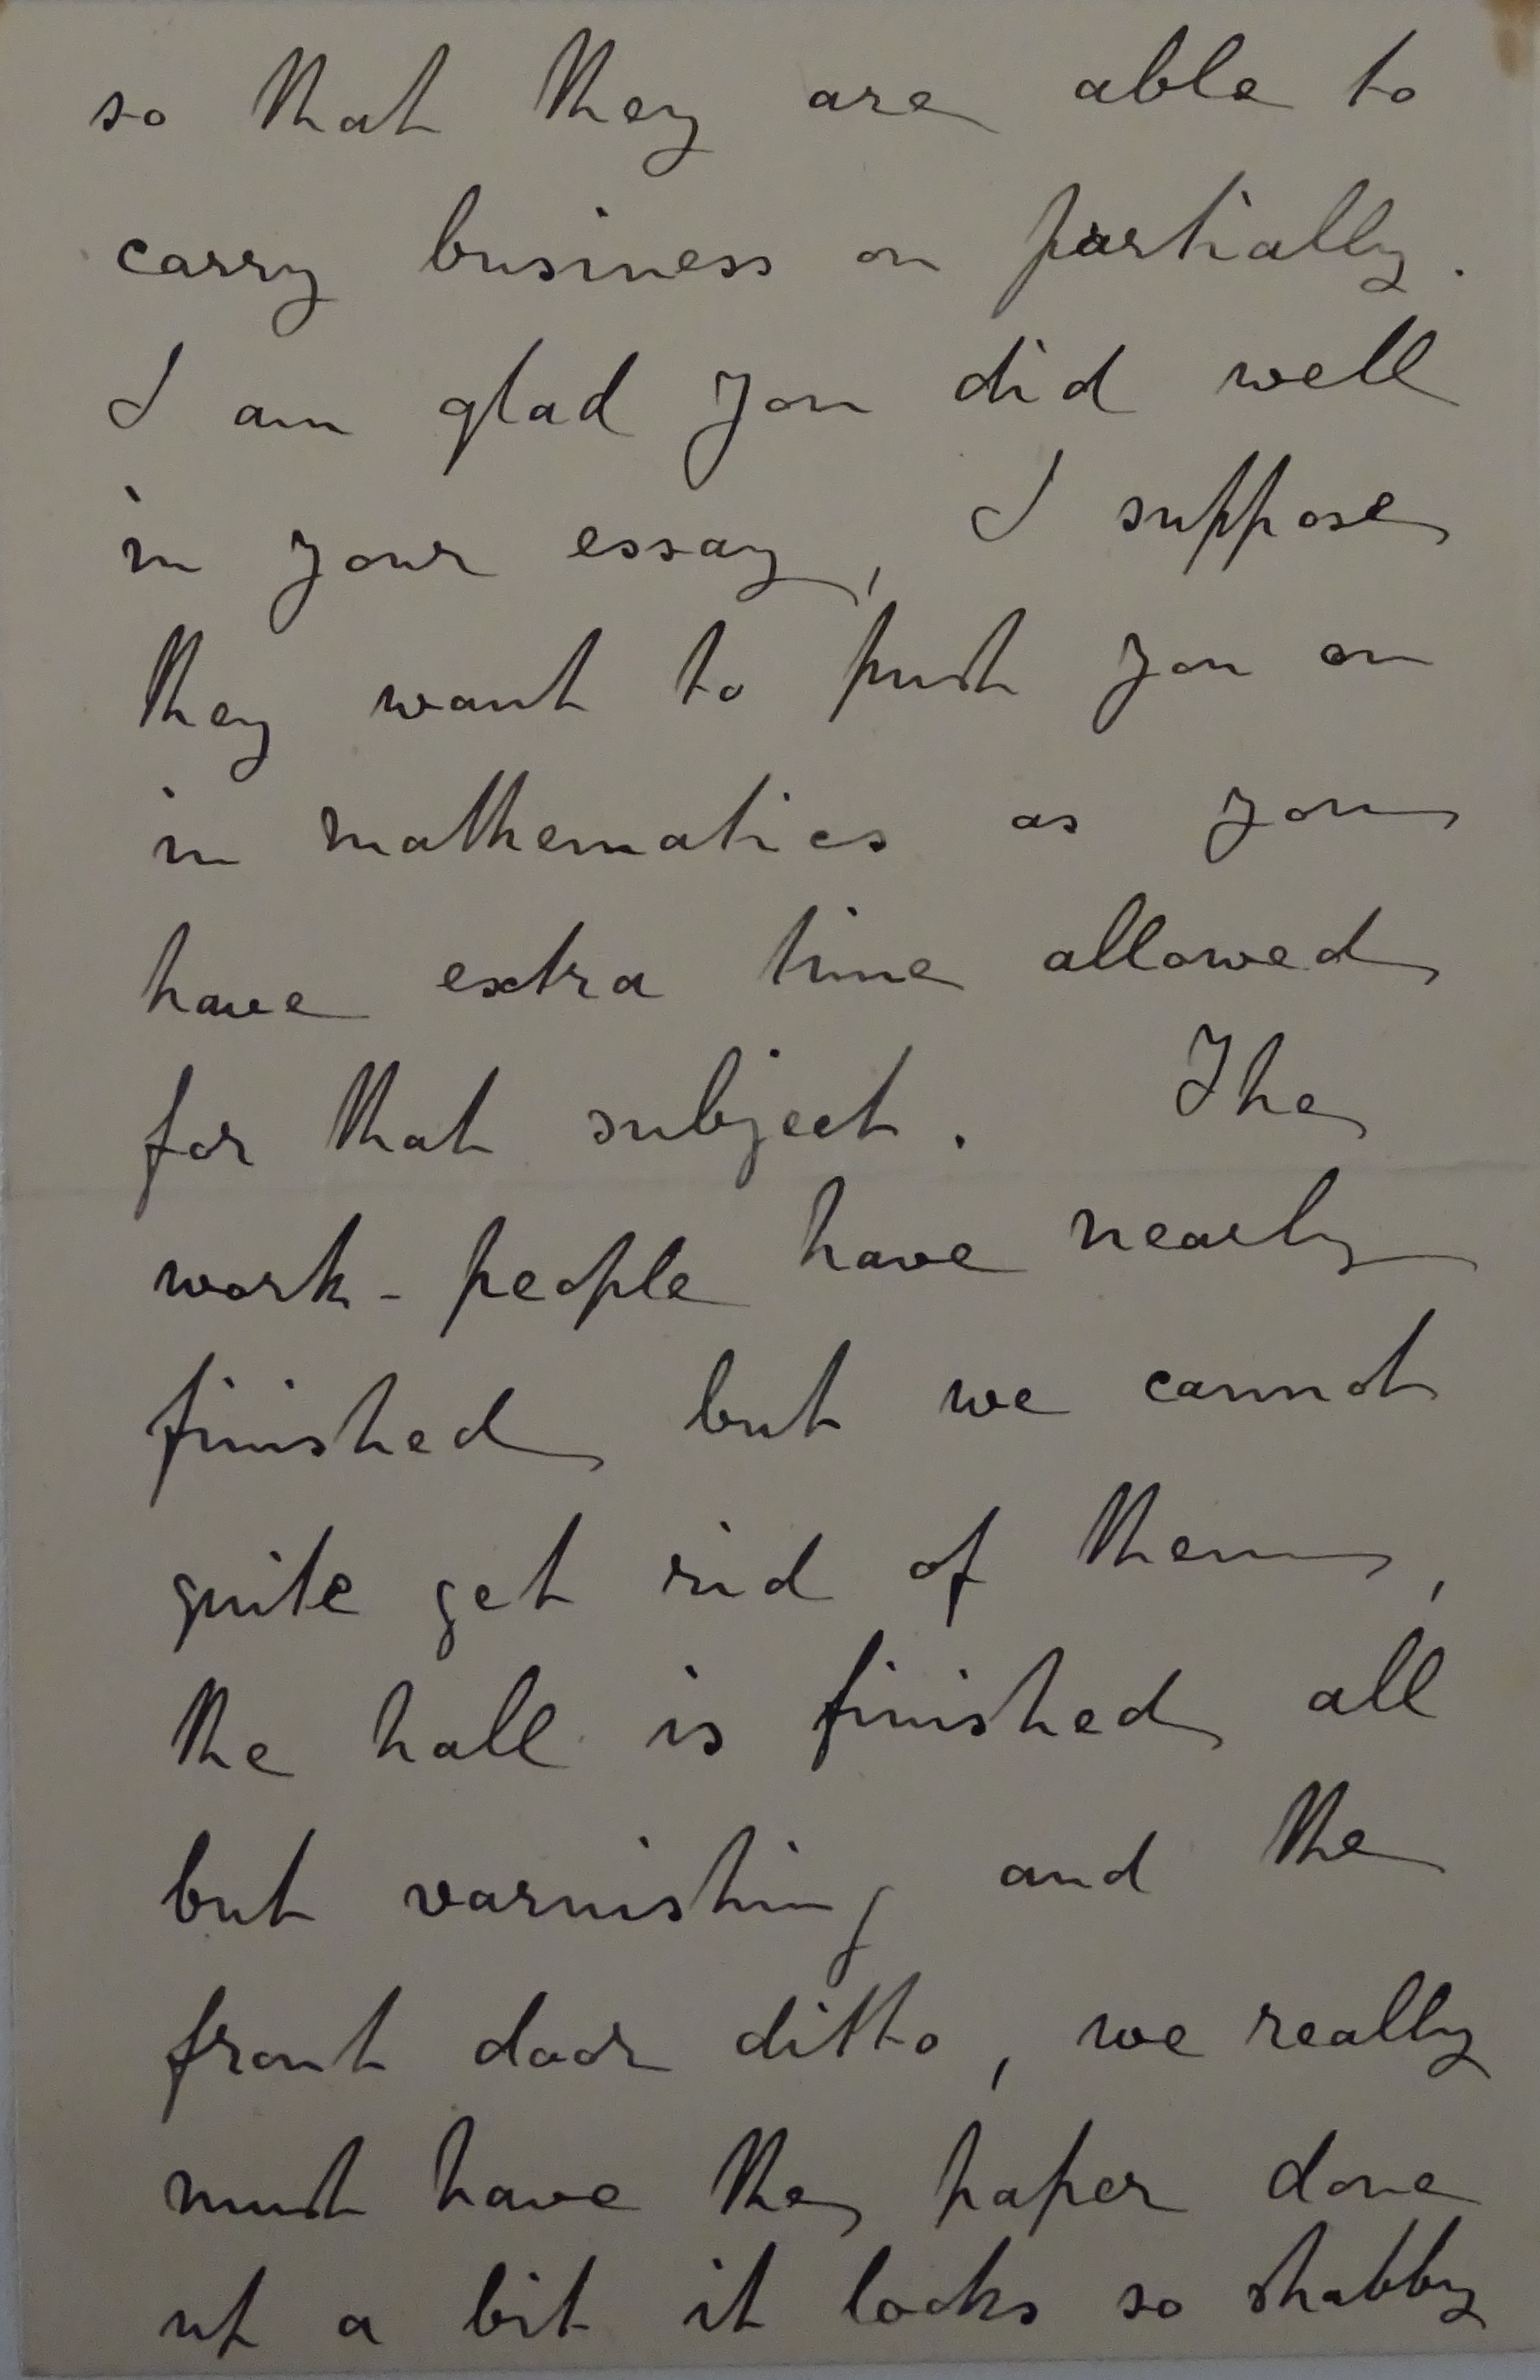 so that they are able to
carry business on partially.
I am glad you did well
in your essay, I suppose
they want to push you on
in mathematics as you
have extra time allowed
for that subject. The
work-people have nearly
finished but we cannot
quite get rid of them,
the hall is finished all
but varnishing and the
front door ditto, we really
must have the paper done
up a bit it looks so shabby